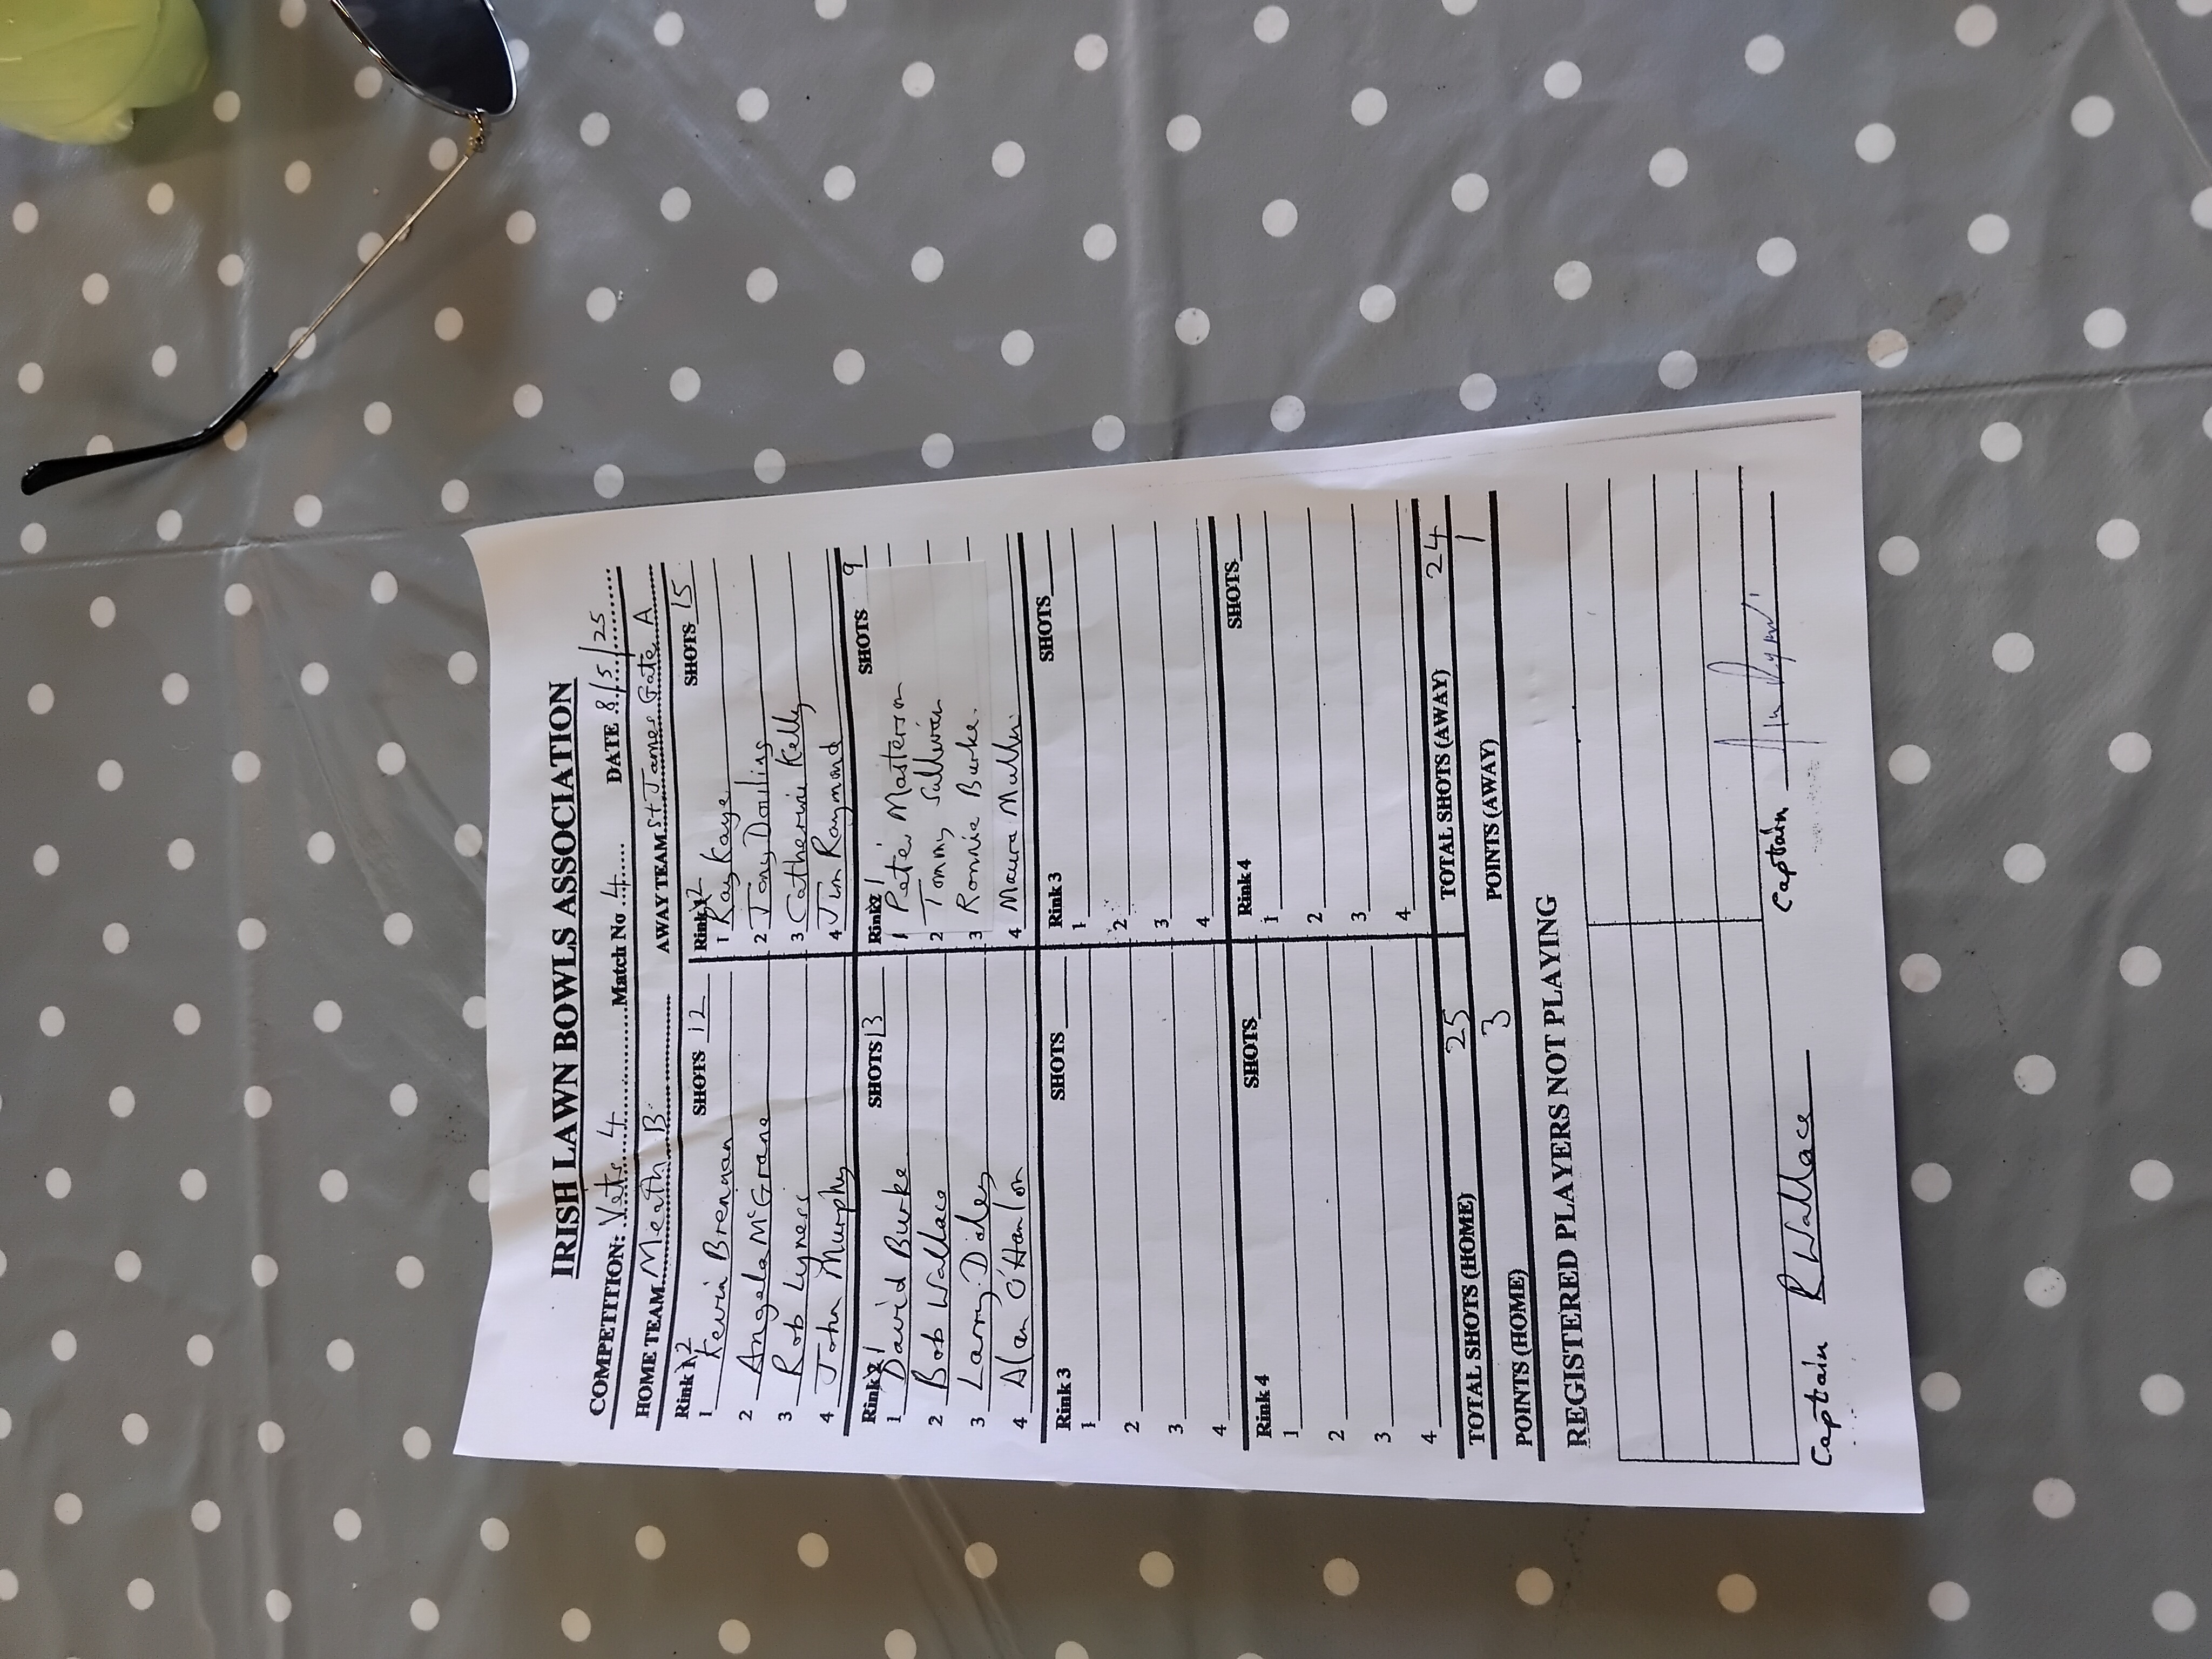 IRISH LAWN BOWLS ASSOCIATION
COMPETITION: Vets 4 Match No 4 DATE 8/5/25
HOME TEAM Meath B AWAY TEAM St James Gate A
Rink 2 SHOTS 12 Rink 2 SHOTS 15
1 Kevin Brennan 1 Ray Kaye
2 Angela McGrane 2 Tony Dowling
3 Rob Lyness 3 Catherine Kelly
4 John Murphy 4 Jim Raymond
Rink 1 SHOTS 13 Rink 1 SHOTS 9
1 David Burke 1 Peter Masterson
2 Bob Wallace 2 Tommy Sullivan
3 Larry Daley 3 Ronnie Burke.
4 Alan O'Hanlon 4 Maura Mullin
Rink 3 SHOTS Rink 3 SHOTS
1 1
2 2
3 3
4 4
Rink 4 SHOTS Rink 4 SHOTS
1 1
2 2
3 3
4 4
TOTAL SHOTS (HOME) 25 TOTAL SHOTS (AWAY) 24
POINTS (HOME) 3 POINTS (AWAY) 1
REGISTERED PLAYERS NOT PLAYING
Captain R Wallace Captain